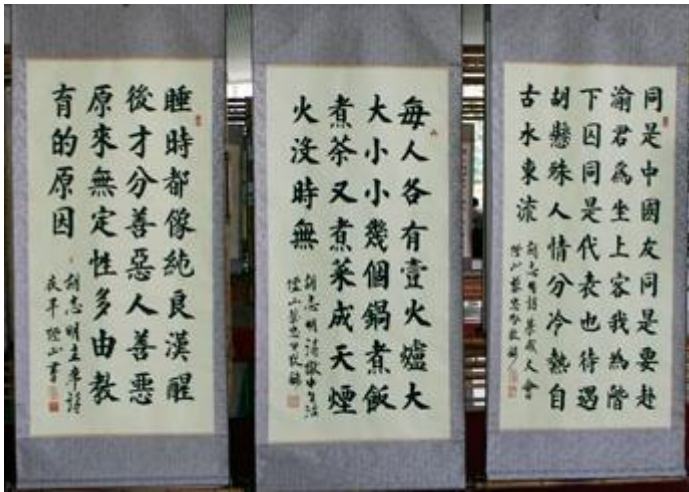 同是中國友同是要赴
渝君爲坐上容我為階
下囚同是代表也待遇
胡懸殊人情分冷熱自
古水東流
每人各有壹火爐大
大小小幾個鍋煮飯
煮茶又煮菜成天煙
火沒時無
胡志明詩獄中生活
睡時都像純良漢醒
後才分善惡人善惡
原來無定性多由教
育的原因
胡志明主席詩